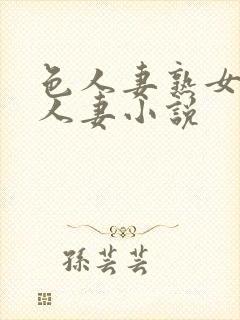 色人妻熟女
人妻小說
孫芸芸